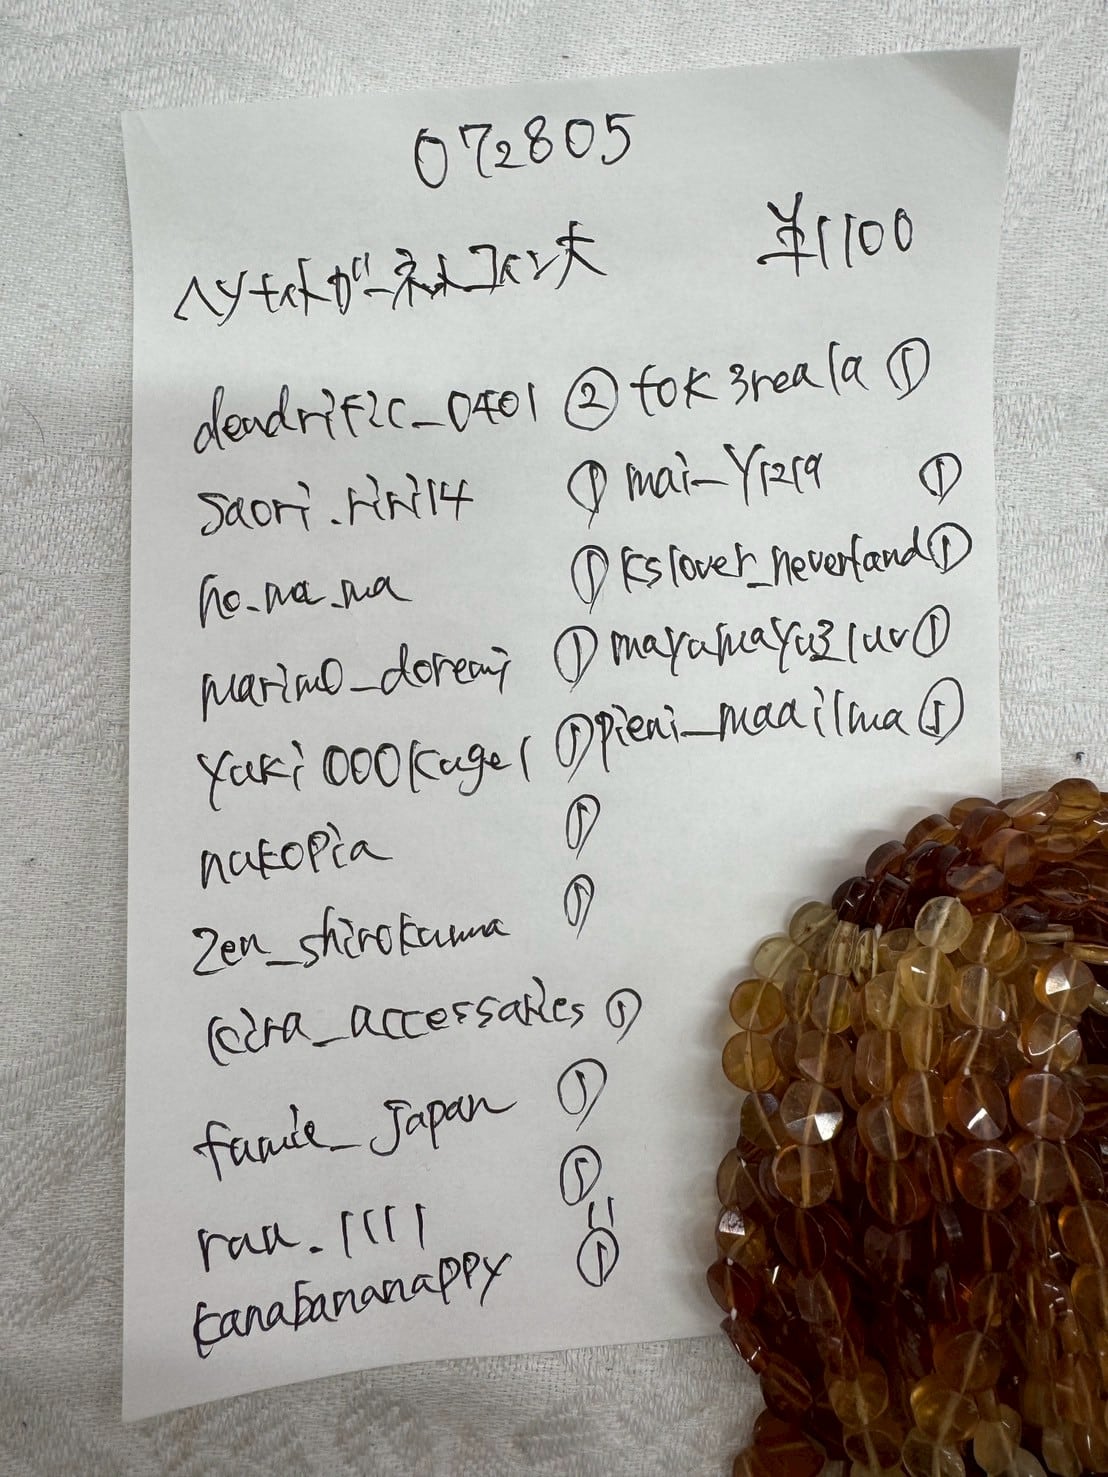 072805
¥1100
ヘソナイトガーネットコイン大
deadrific_0401 ②
saori.riri14 ①
ho_ma_ma ①
marimo_doremi ①
yuki1000kugel ①
nakopia ①
zen_shirokuma ①
ceira_accessaries ①
famie_japan ①
rau.1111 ①
11
kanabananappy ①
tok3reala ①
mai_y1219 ①
kslover_neverland ①
mayumayu31uv ①
pieni_maailma ①